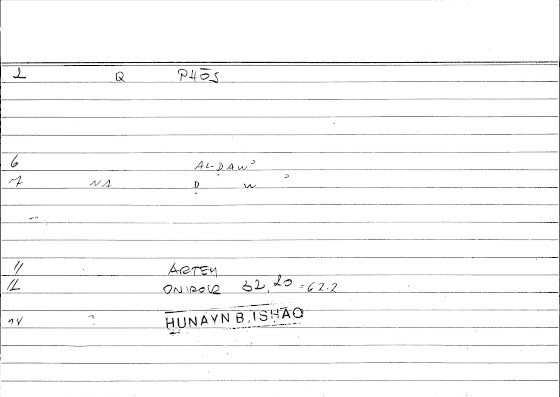 1 Q PHŌS
6 AL-ḌAWʾ
7 NA Ḍ W ʾ
11 ARTEM
12 ONIROCR 62,20 = 62.2
14 HUNAYN B. ISHAQ